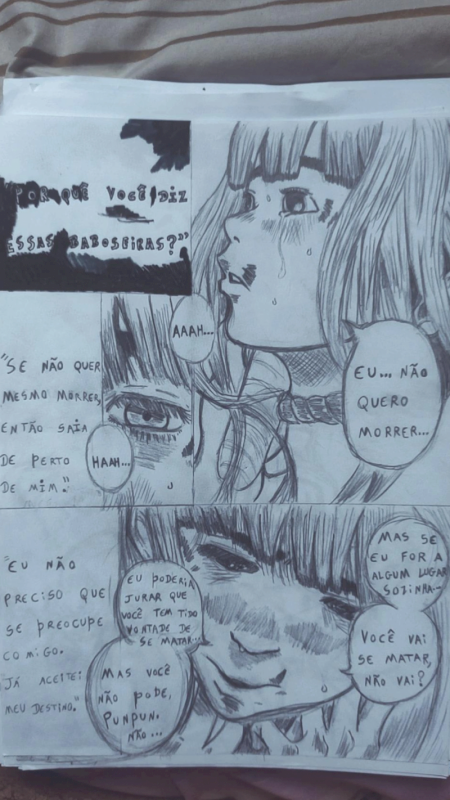 "POR QUÊ VOCÊ DIZ
ESSAS BABOSEIRAS?"
AAAH...
EU... NÃO
QUERO
MORRER...
"SE NÃO QUER
MESMO MORRER,
ENTÃO SAIA
DE PERTO
DE MIM."
HAAH...
MAS SE
EU FOR A
ALGUM LUGAR
SOZINHA...
EU PODERIA
JURAR QUE
VOCÊ TEM TIDO
VONTADE DE
SE MATAR...
VOCÊ VAI
SE MATAR,
NÃO VAI?
MAS VOCÊ
NÃO PODE,
PUNPUN.
NÃO...
"EU NÃO
PRECISO QUE
SE PREOCUPE
COMIGO.
JÁ ACEITEI
MEU DESTINO."